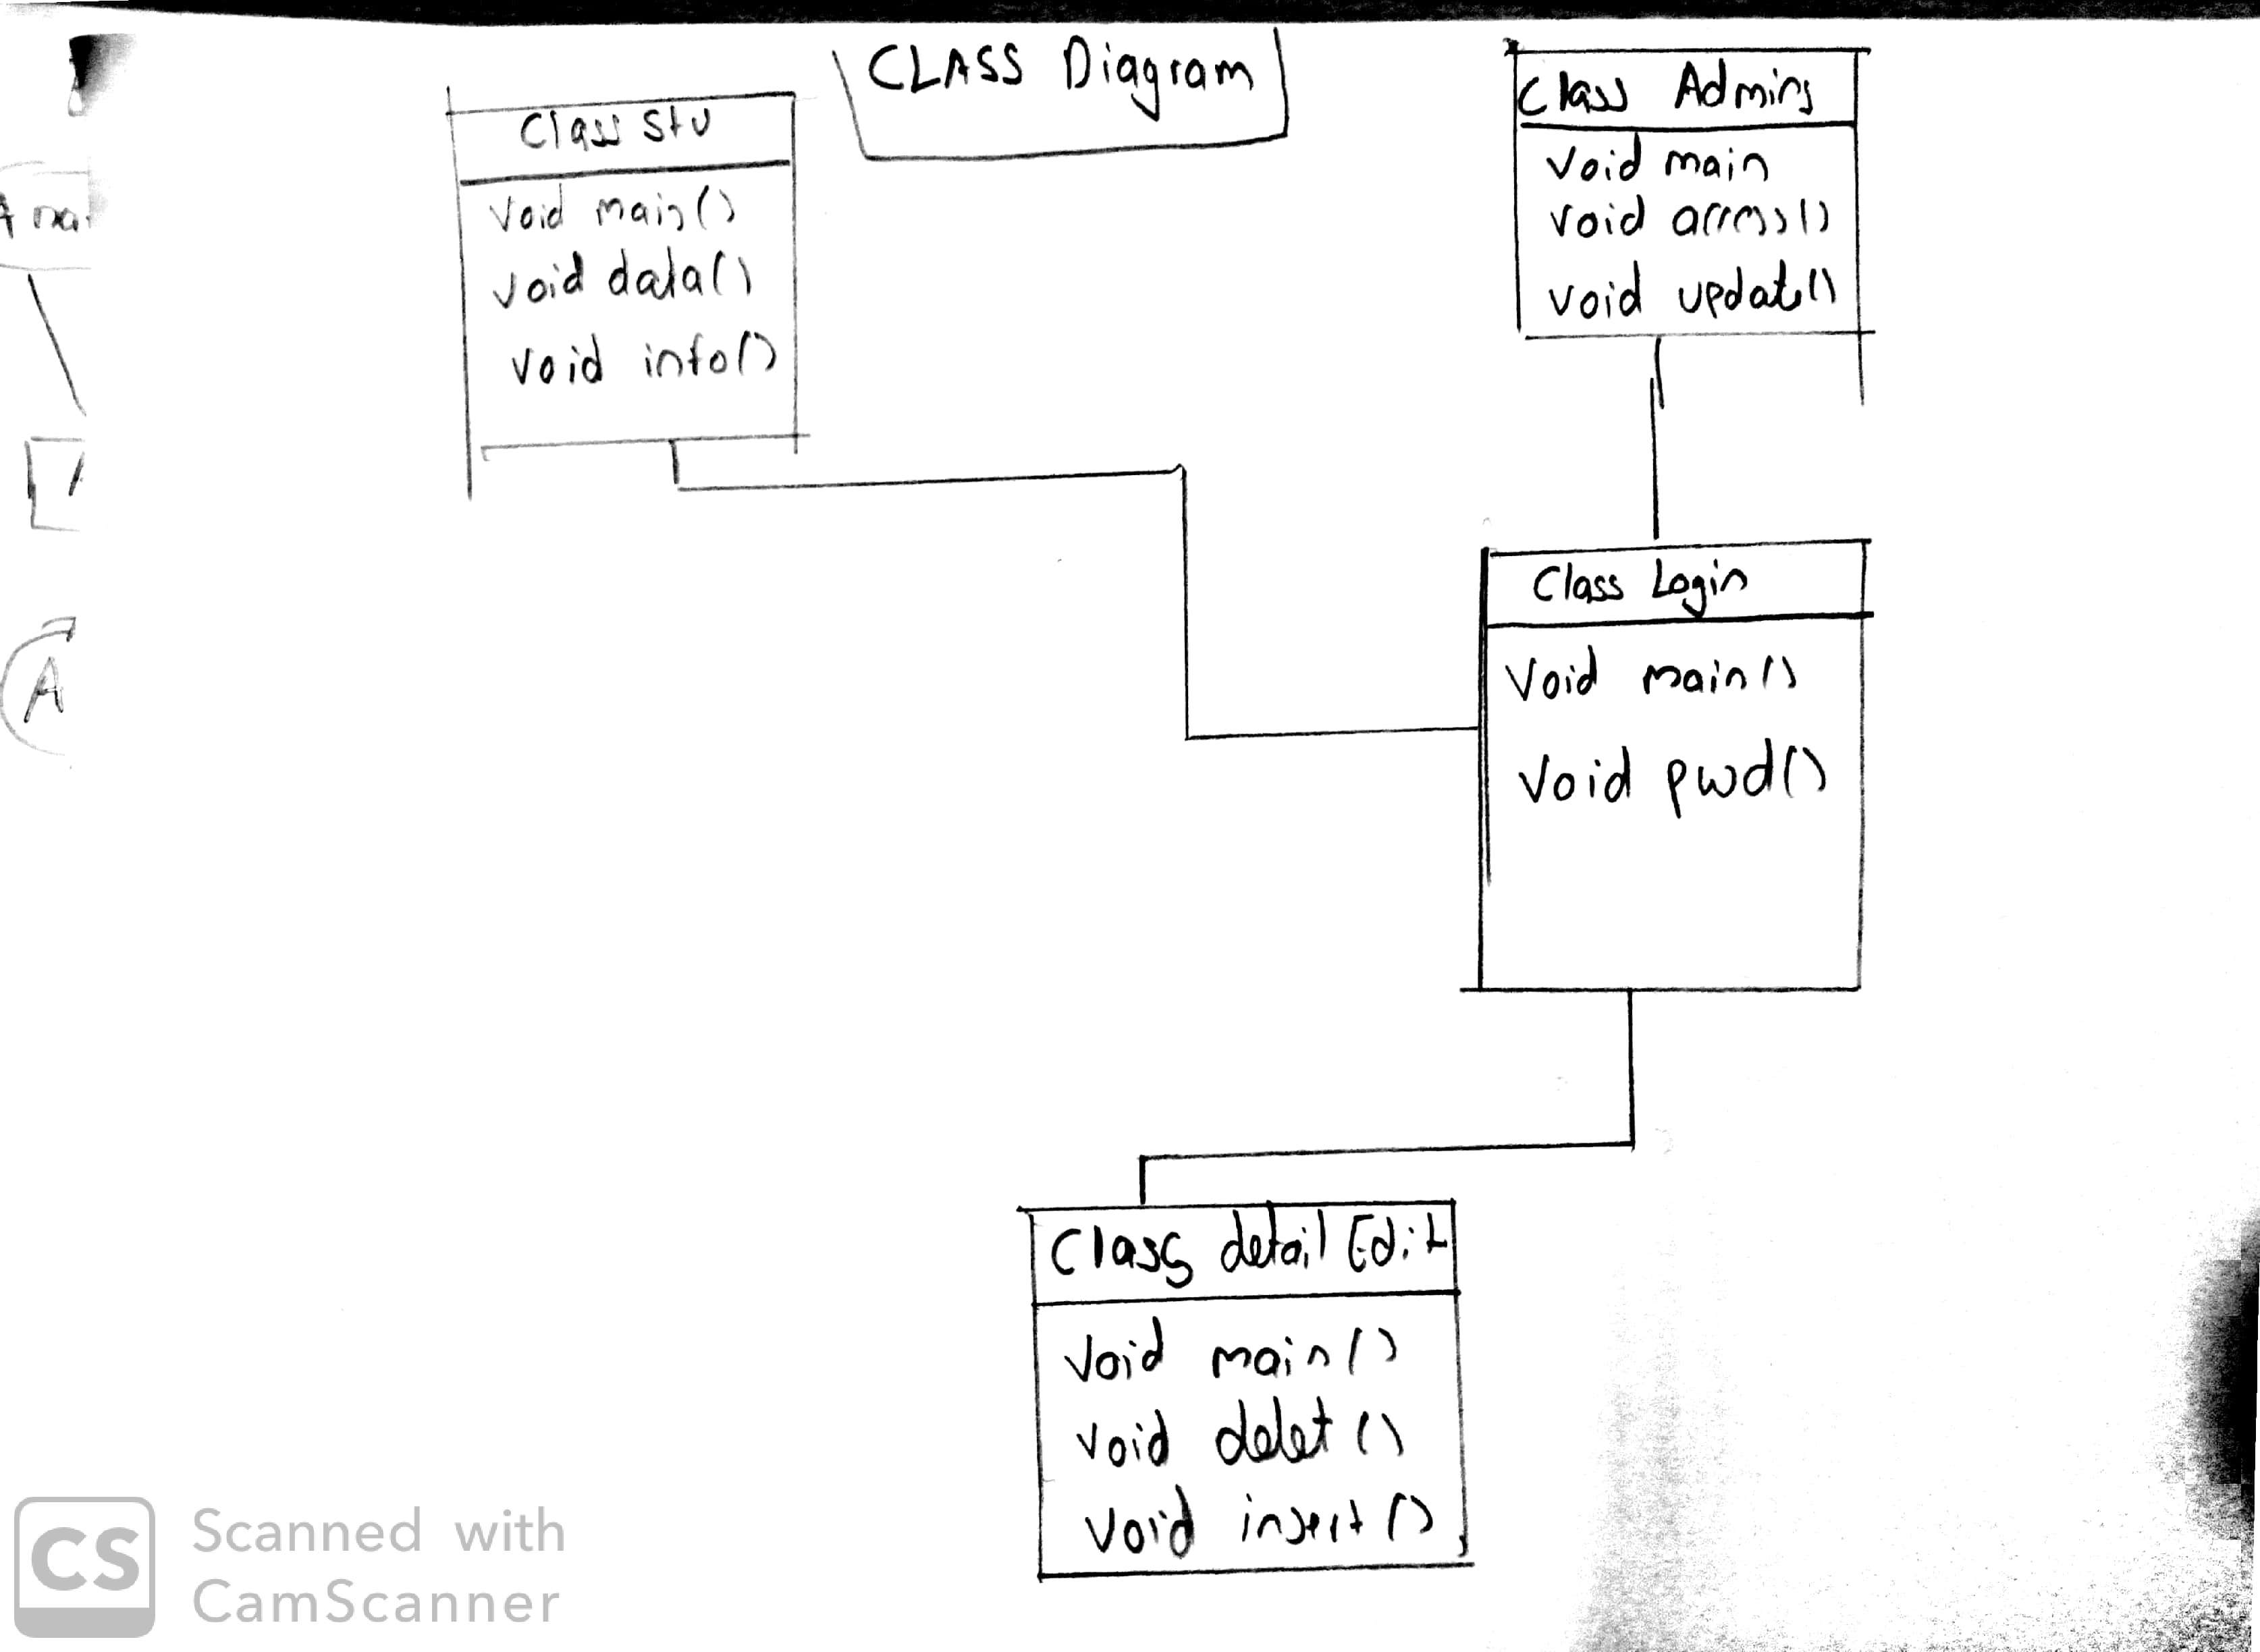 CLASS Diagram
Class stu
Void main()
Void data()
Void info()
Class Admins
Void main
Void access()
Void update()
Class Login
Void main()
Void pwd()
Class detail Edit
Void main()
Void delet ()
Void insert ()
A
CS
Scanned with
CamScanner